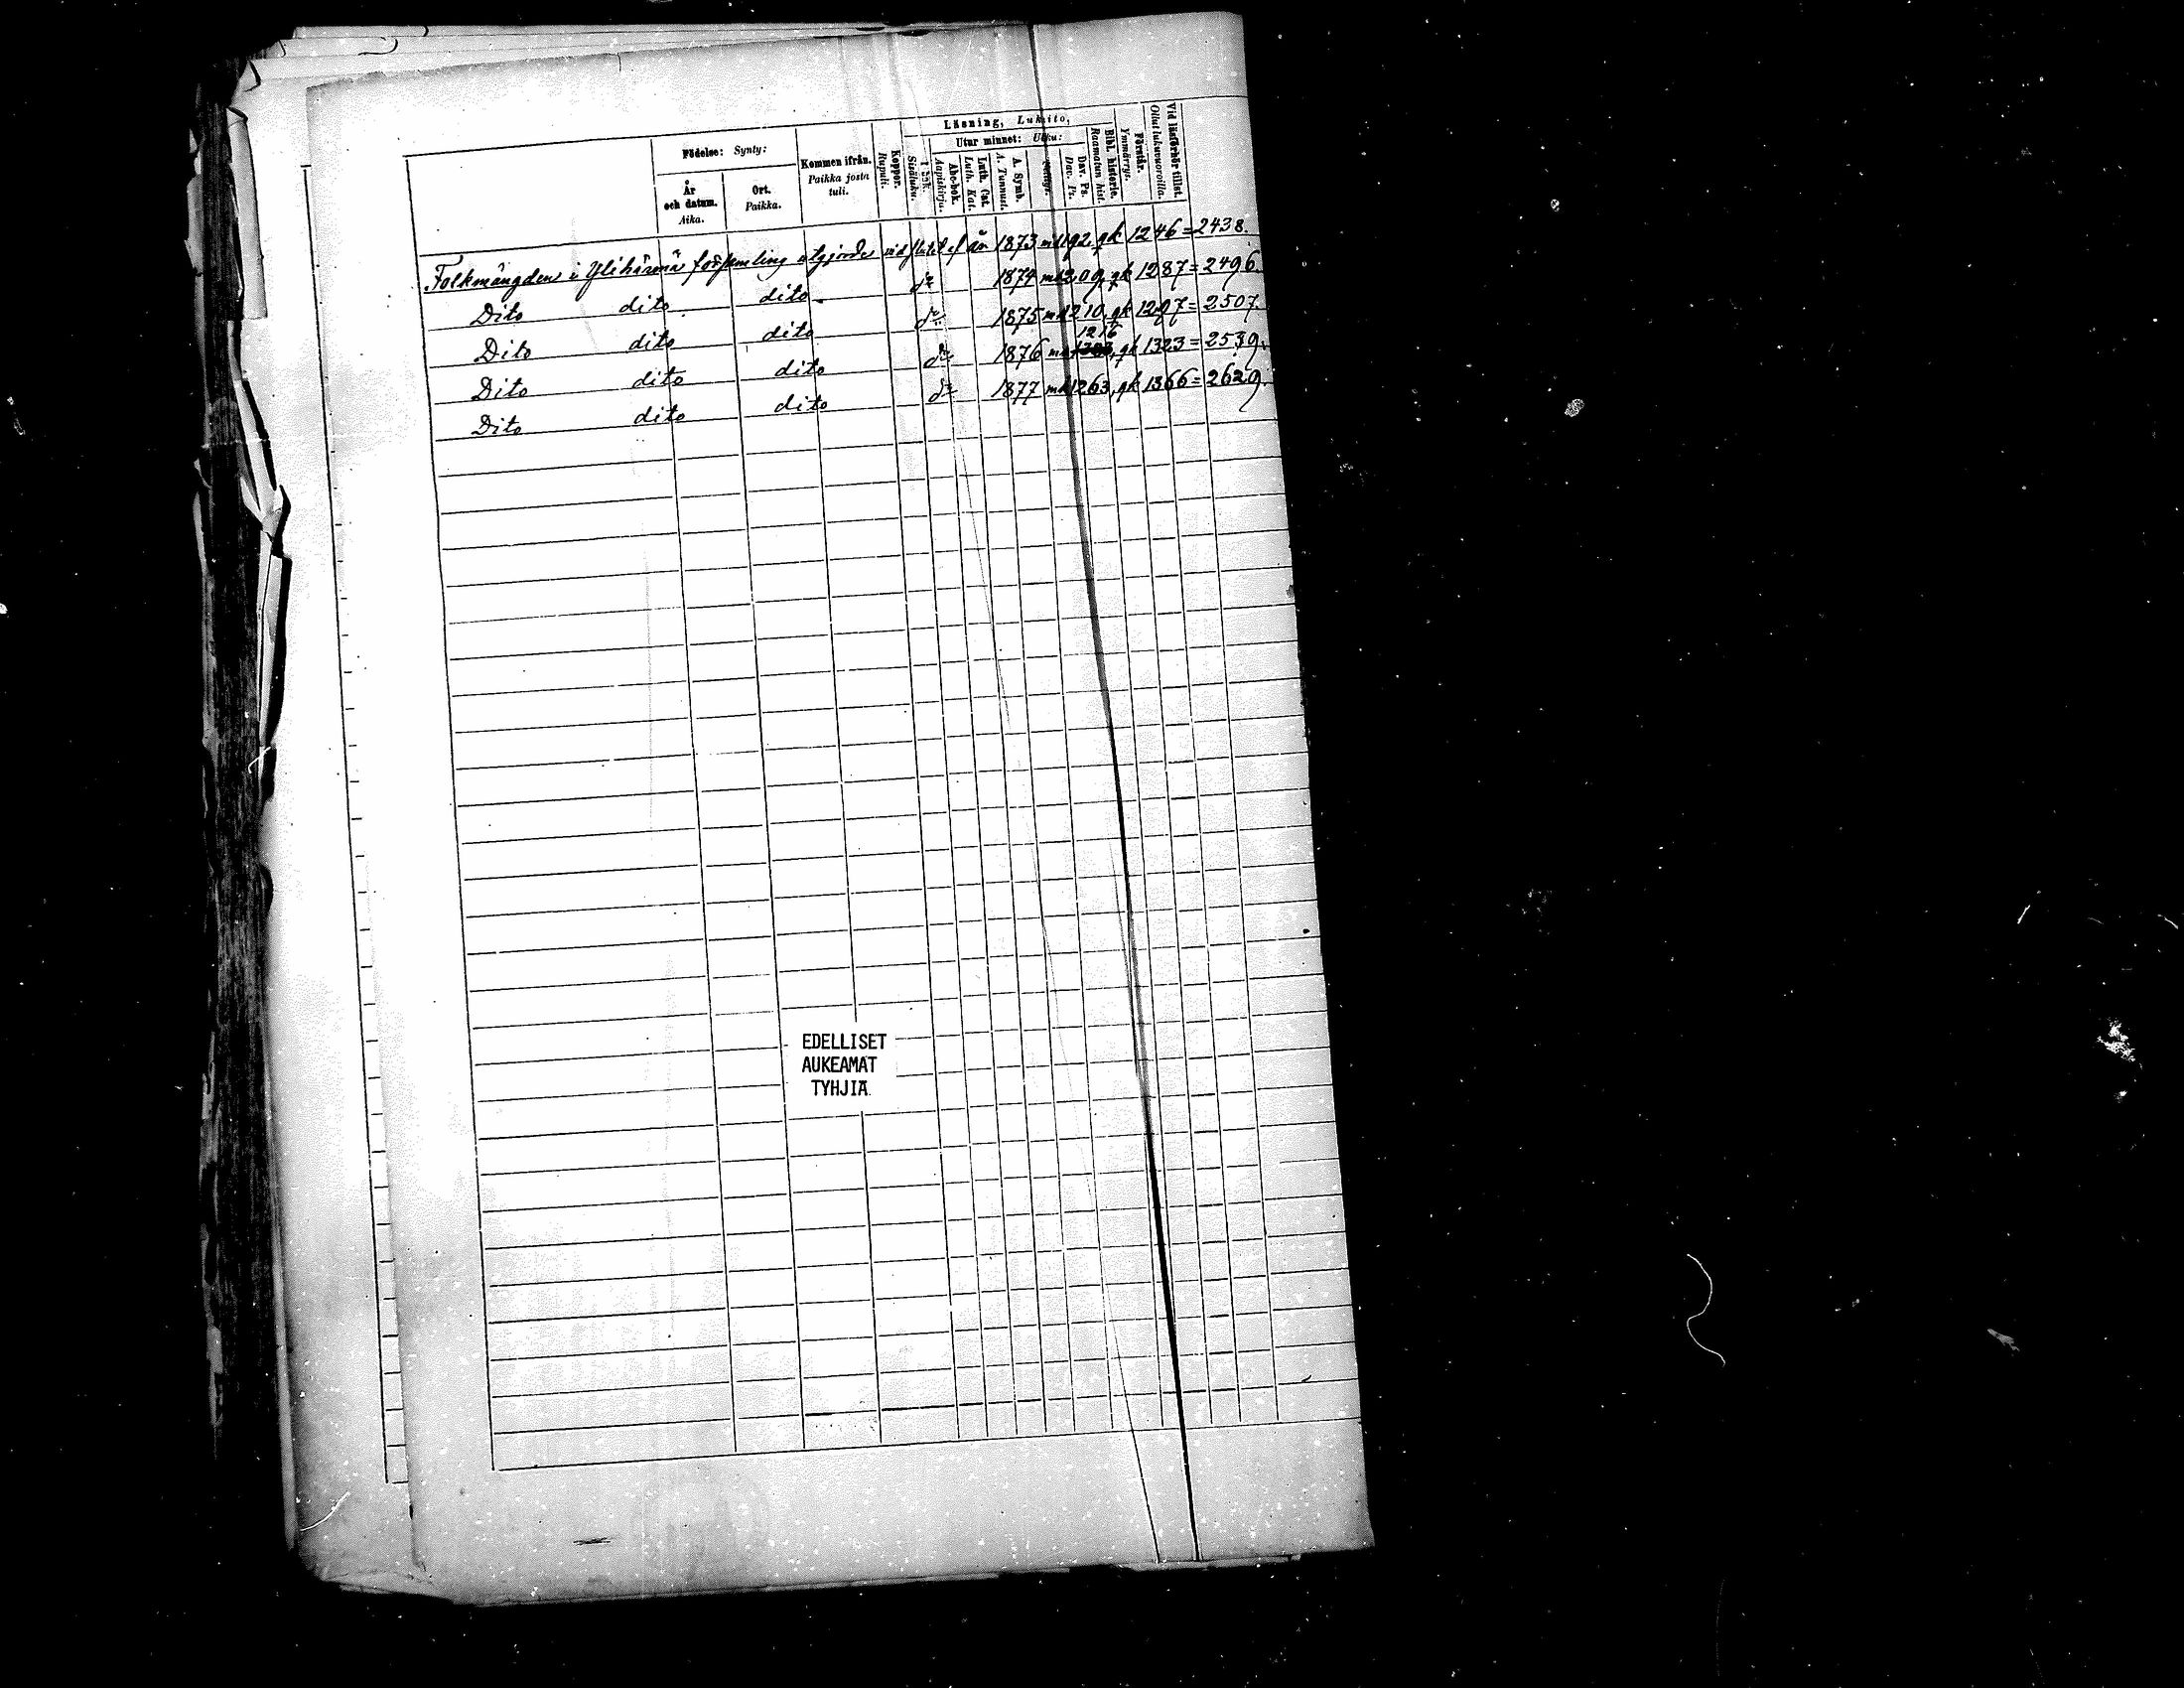 Läsning, Lukeito,
Födelse: Synty:
Utur minnet: Ulku:
År och datum. Aika.
Ort. Paikka.
Kommen ifrån. Paikka josta tuli.
Koppor. Rupuli.
I bok. Sisäluku.
Abc-bok. Aapiskirja.
Luth. Cat. Luth. Kat.
A. Symb. A. Tunnust.
Dav. Ps. Dav. Ps.
Bibl. historie. Raamatun hist.
Förstår. Ymmärrys.
Vid läsförhör tillst. Ollut lukuvuoroilla.
Folkmängden i Ylihärmä församling utgjorde vid slutet af år 1873 mk 1192, qk 1246 = 2438.
Dito dito dito do 1874 mk 1209, qk 1287 = 2496.
Dito dito dito do 1875 mk 1210, qk 1297 = 2507.
1216
Dito dito dito do 1876 mk , qk 1323 = 2539.
Dito dito dito do 1877 mk 1263, qk 1366 = 2629.
EDELLISET
AUKEAMAT
TYHJIÄ